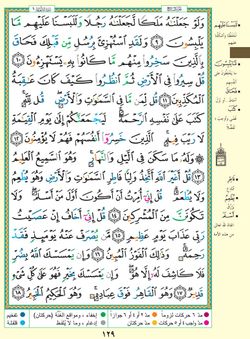 وَلَوْ جَعَلْنَٰهُ مَلَكًا لَّجَعَلْنَٰهُ رَجُلًا وَلَلَبَسْنَا عَلَيْهِم مَّا
يَلْبِسُونَ ٩ وَلَقَدِ ٱسْتُهْزِئَ بِرُسُلٍ مِّن قَبْلِكَ فَحَاقَ
بِٱلَّذِينَ سَخِرُوا۟ مِنْهُم مَّا كَانُوا۟ بِهِۦ يَسْتَهْزِءُونَ ١٠
قُلْ سِيرُوا۟ فِى ٱلْأَرْضِ ثُمَّ ٱنظُرُوا۟ كَيْفَ كَانَ عَٰقِبَةُ
ٱلْمُكَذِّبِينَ ١١ قُل لِّمَن مَّا فِى ٱلسَّمَٰوَٰتِ وَٱلْأَرْضِ قُل لِّلَّهِ
كَتَبَ عَلَىٰ نَفْسِهِ ٱلرَّحْمَةَ لَيَجْمَعَنَّكُمْ إِلَىٰ يَوْمِ ٱلْقِيَٰمَةِ
لَا رَيْبَ فِيهِ ٱلَّذِينَ خَسِرُوٓا۟ أَنفُسَهُمْ فَهُمْ لَا يُؤْمِنُونَ ١٢
وَلَهُۥ مَا سَكَنَ فِى ٱلَّيْلِ وَٱلنَّهَارِ وَهُوَ ٱلسَّمِيعُ ٱلْعَلِيمُ
١٣ قُلْ أَغَيْرَ ٱللَّهِ أَتَّخِذُ وَلِيًّا فَاطِرِ ٱلسَّمَٰوَٰتِ وَٱلْأَرْضِ وَهُوَ يُطْعِمُ
وَلَا يُطْعَمُ قُلْ إِنِّىٓ أُمِرْتُ أَنْ أَكُونَ أَوَّلَ مَنْ أَسْلَمَ وَلَا
تَكُونَنَّ مِنَ ٱلْمُشْرِكِينَ ١٤ قُلْ إِنِّىٓ أَخَافُ إِنْ عَصَيْتُ
رَبِّى عَذَابَ يَوْمٍ عَظِيمٍ ١٥ مَّن يُصْرَفْ عَنْهُ يَوْمَئِذٍ فَقَدْ
رَحِمَهُۥ وَذَٰلِكَ ٱلْفَوْزُ ٱلْمُبِينُ ١٦ وَإِن يَمْسَسْكَ ٱللَّهُ بِضُرٍّ
فَلَا كَاشِفَ لَهُۥٓ إِلَّا هُوَ وَإِن يَمْسَسْكَ بِخَيْرٍ فَهُوَ عَلَىٰ كُلِّ شَىْءٍ
قَدِيرٌ ١٧ وَهُوَ ٱلْقَاهِرُ فَوْقَ عِبَادِهِۦ وَهُوَ ٱلْحَكِيمُ ٱلْخَبِيرُ ١٨
مدّ ٦ حركات لزوماً مدّ ٢ أو ٤ أو ٦ جوازاً إخفاء، ومواقع الغنّة (حركتان) تفخيم
مدّ واجب ٤ أو ٥ حركات مدّ حركتان إدغام، وما لا يُلفظ قلقلة
١٢٩